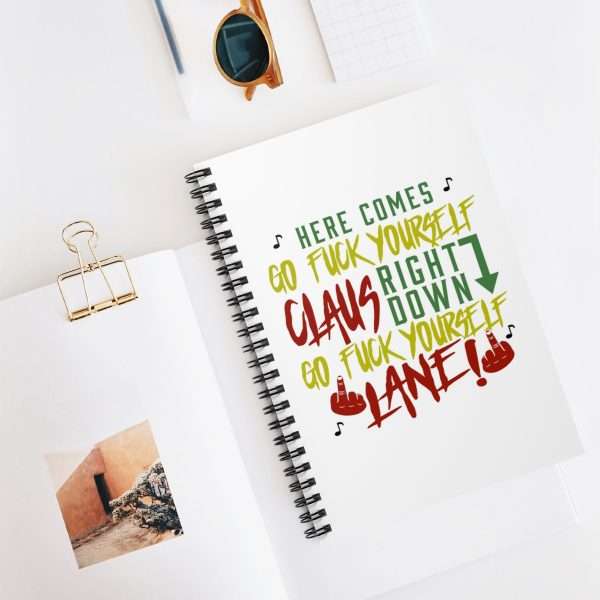 HERE COMES
GO FUCK YOURSELF
CLAUS RIGHT DOWN
GO FUCK YOURSELF
LANE!